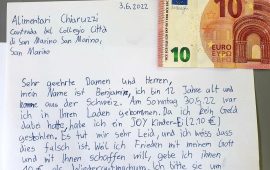 3.6.2022
Alimentari Chiaruzzi
Contrada del Collegio Città
di San Marino San Marino,
San Marino
10
EURO
Sehr geehrte Damen und Herren,
mein Name ist Benjamin, ich bin 12 Jahre alt und
komme aus der Schweiz. Am Sonntag 30.5.22 war
ich in Ihren Laden gekommen. Da ich kein Geld
dabei hatte, habe ich ein JOY Kinder-Ei (2,10 €)
gestohlen. Es tut mir sehr Leid, und ich weiss dass
dies falsch ist. Weil ich Frieden mit meinem Gott
und mit Ihnen schaffen will, gebe ich ihnen
10 € als Ich bitte sie um